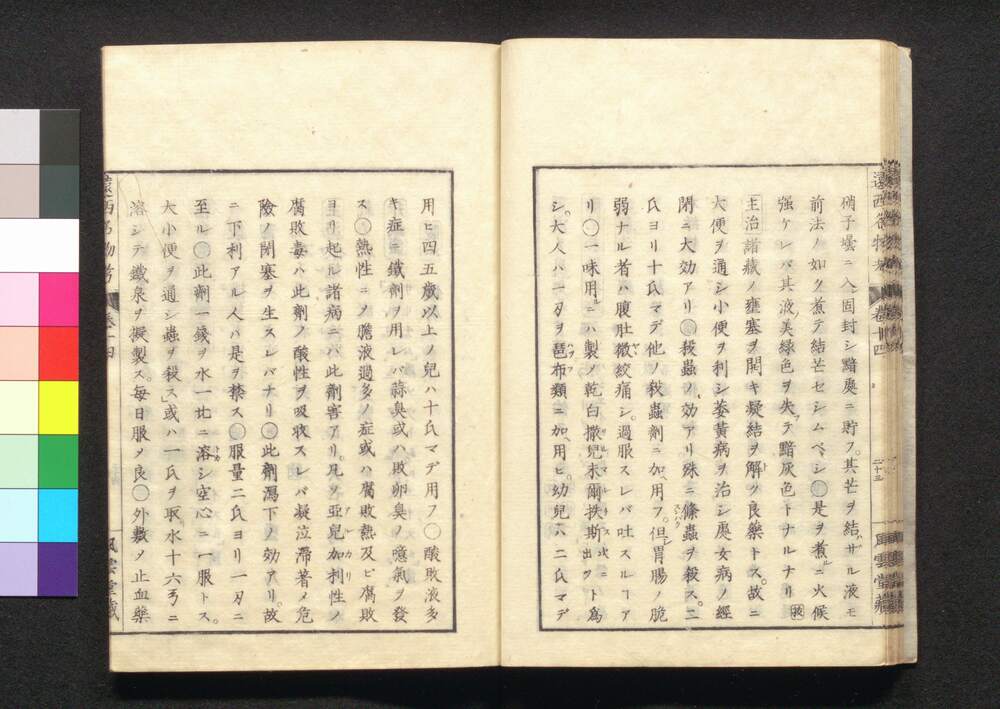 硝子壜ニ入レ固封シ黯處ニ貯フ。其芒ヲ結バザル液モ
前法ノ如ク煮テ結芒セシムベシ○是ヲ煮ルニ火候
強ケレバ其液美緑色ヲ失ヒテ黯灰色トナルナリ
主治 諸藏ノ壅塞ヲ開キ凝結ヲ解ク良藥トス。故ニ
大便ヲ通シ小便ヲ利シ萎黄病ヲ治シ處女病ノ經
閉ニ大効アリ○殺蟲ノ効アリ殊ニ絛蟲ヲ殺ス。二
氏ヨリ十氏マデ他ノ殺蟲劑ニ加ヘ用フ。但シ胃腸ノ脆
弱ナル者ハ腹肚微シ絞痛シ。過服スレバ吐スルヿア
リ○一味用ルニハ製ノ乾白撒兒末爾扶斯次ニ出ヅト為
シ。大人ハ一刄ヲ琶布類ニ加ヘ用ヒ。幼兒ハ二氏マデ
遠西名物考 巻十四
二十三
風雲堂藏
用ヒ四五歳以上ノ兒ハ十氏マデ用フ○酸敗液多
キ症ニ鐵劑ヲ用レバ蒜臭或ハ敗卵臭ノ噫氣ヲ發
ス○熱性ニノ膽液過多ノ症或ハ腐敗熱及ビ腐敗
ヨリ起ル諸病ニハ此劑害アリ。凡ソ亞兒加利性ノ
腐敗毒ハ此劑ノ酸性ヲ吸收スレバ凝泣滯著メ危
險ノ閉塞ヲ生スレバナリ○此劑瀉下ノ効アリ。故
ニ下利アル人ハ是ヲ禁ス○服量二氏ヨリ一刄ニ
至ル○此劑一錢ヲ水一比ニ溶シ空心ニ一服トス。
大小便ヲ通シ蟲ヲ殺ス」或ハ一氏ヲ取水十六ヲニ
溶シテ鐵泉ヲ擬製ス。毎日服メ良○外敷メ止血藥
遠西名物考 巻十四
風雲堂藏